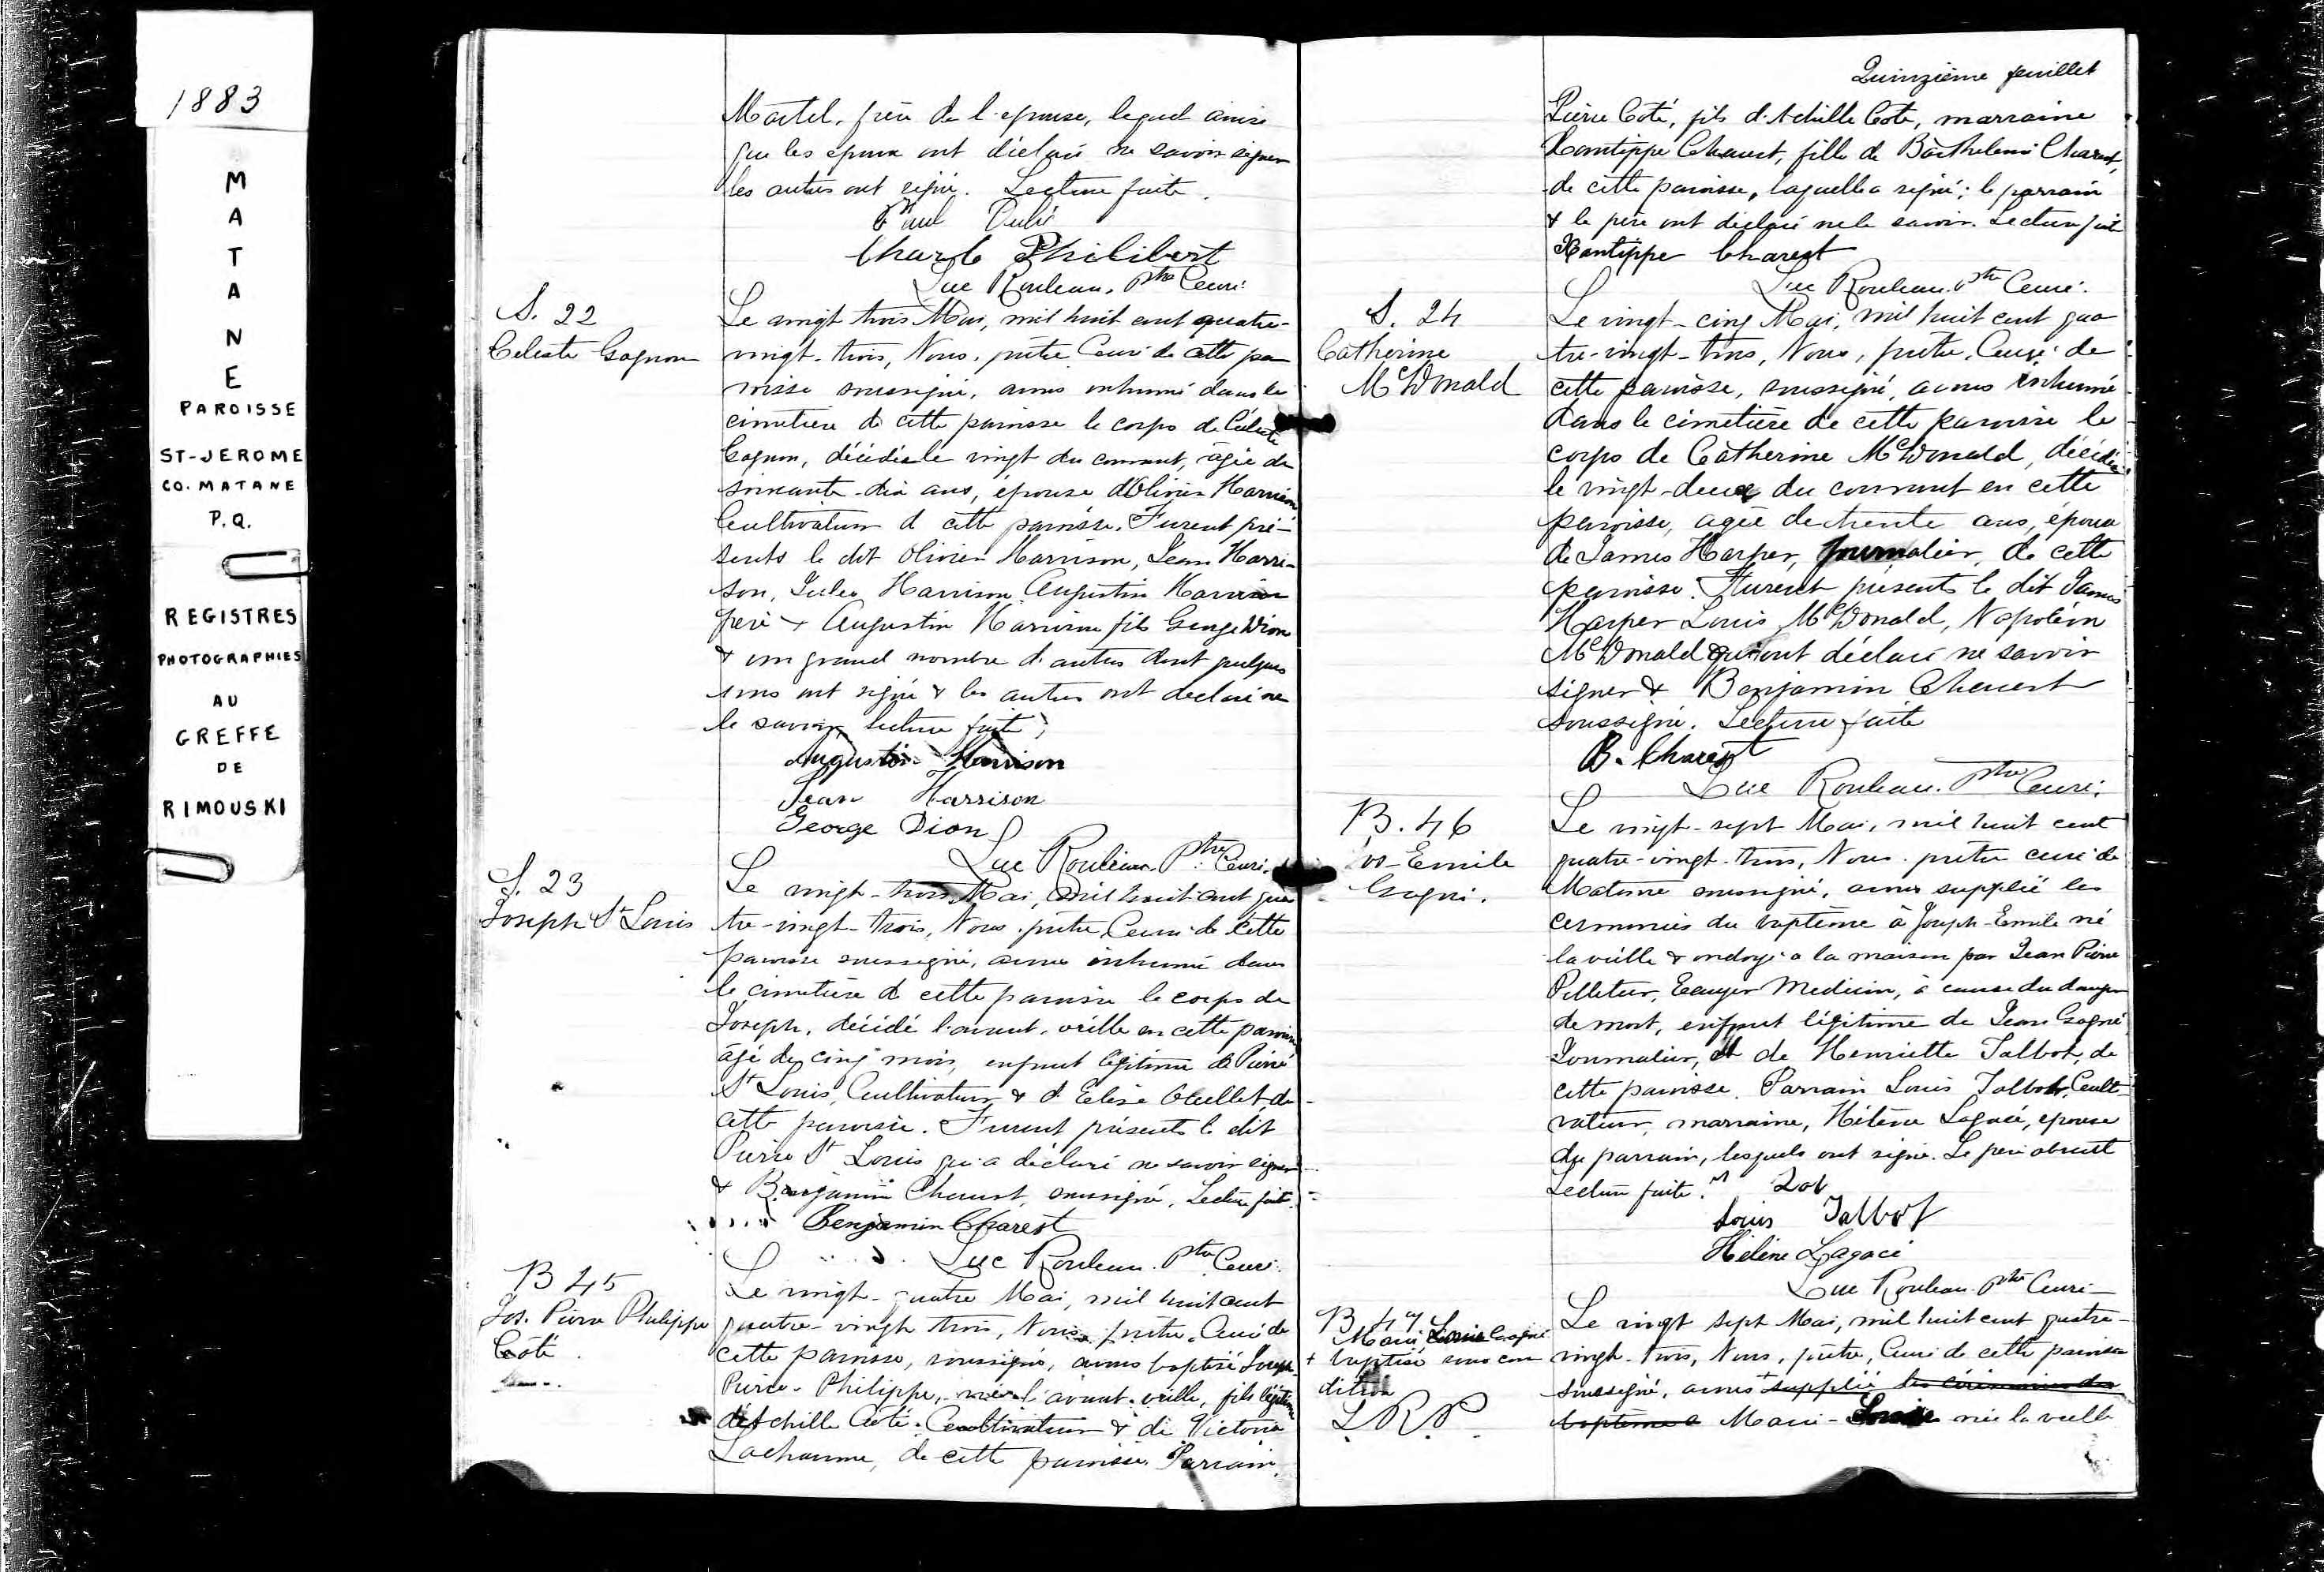 1883
M
A
T
A
N
E
PAROISSE
ST-JEROME
CO. MATANE
P.Q.
REGISTRES
PHOTOGRAPHIES
AU
GREFFE
DE
RIMOUSKI
Martel, frère de l'épouse, lequel ainsi
que les époux ont déclaré ne savoir signer
les autres ont signé. Lecture faite.
Paul Dubé
Charle Philibert
Luc Rouleau, Ptre Curé.
S. 22
Celeste Gagnon
Le vingt trois Mai, mil huit cent quatre-
vingt-trois, Nous, prêtre Curé de cette pa
roisse soussigné, avons inhumé dans le
cimetière de cette paroisse le corps de Céleste
Gagnon, décédée le vingt du courant, âgée de
soixante-dix ans, épouse d'Olivier Harrison
Cultivateur de cette paroisse. Furent pré-
sents le dit Olivier Harrison, Jean Harri-
son, Jules Harrison, Augustin Harrison
père & Augustin Harrison fils George Dion
& un grand nombre d'autres dont quelques
uns ont signé & les autres ont déclaré ne
le savoir, lecture faite,
Augustin Harrison
Jean Harrison
George Dion
Luc Rouleau Ptre Curé.
S. 23
Joseph St Louis
Le vingt-trois Mai, mil huit cent qua
tre-vingt-trois, Nous, prêtre, Curé de cette
paroisse soussigné, avons inhumé dans
le cimetière de cette paroisse le corps de
Joseph, décédé l'avant-veille en cette paroisse
âgé de cinq mois, enfant légitime de Pierre
St Louis, Cultivateur & d'Elise Ouellet, de
cette paroisse. Furent présents le dit
Pierre St Louis qui a déclaré ne savoir signer
& Benjamin Charest, soussigné, Lecture faite.
Benjamin Charest
Luc Rouleau Ptre Curé.
B 45
Jos. Pierre Philippe
Coté
Le vingt-quatre Mai, mil huit cent
quatre-vingt trois, Nous, prêtre, Curé de
cette paroisse, soussigné, avons baptisé Joseph
Pierre-Philippe, né l'avant-veille, fils légitime
d'Achille Côté, Cultivateur & de Victoria
Lachaume, de cette paroisse Parrain,
Quinzième feuillet
Pierre Coté, fils d'Achille Coté, marraine
Xantippe Charest, fille de Barthelemi Charest,
de cette paroisse, laquelle a signé; le parrain
& le père ont déclaré ne le savoir. Lecture faite
Xantippe Charest
Luc Rouleau Ptre Curé.
S. 24
Catherine
McDonald
Le vingt-cinq Mai, mil huit cent qua
tre-vingt-trois, Nous, prêtre, Curé de
cette paroisse, soussigné, avons inhumé
dans le cimetière de cette paroisse le
corps de Catherine McDonald, décédée
le vingt-deux du courant en cette
paroisse, agée de trente ans, épouse
de James Harper, Journalier, de cette
paroisse. Furent présents le dit James
Harper Louis McDonald, Napoléon
McDonald qui ont déclaré ne savoir
signer & Benjamin Charest
soussigné. Lecture faite
B. Charest
Luc Rouleau. Ptre Curé.
B. 46
Jos-Emile
Gagné.
Le vingt-sept Mai, mil huit cent
quatre-vingt-trois, Nous prêtre curé de
Matane soussigné, avons supplié les
cérémonies du baptême à Joseph-Emile né
la veille & ondoyé à la maison par Jean Pierre
Pelletier, Ecuyer Medicin, à cause du danger
de mort, enfant légitime de Jean Gagné
Journalier, et de Henriette Talbot, de
cette paroisse. Parrain Louis Talbot, Culti-
vateur, marraine, Hélène Lagacé, epouse
du parrain, lesquels ont signé. Le père absent
Lecture faite.
Louis Talbot
Hélène Lagacé
Luc Rouleau Ptre Curé
B 47
Marie Louise Gagné
+ baptisé sous con
dition
L.R.P.
Le vingt sept Mai, mil huit cent quatre-
vingt-trois, Nous, prêtre, Curé de cette paroisse
soussigné, avons + supplié les cérémonies du
baptême a Marie-Louise née la veille